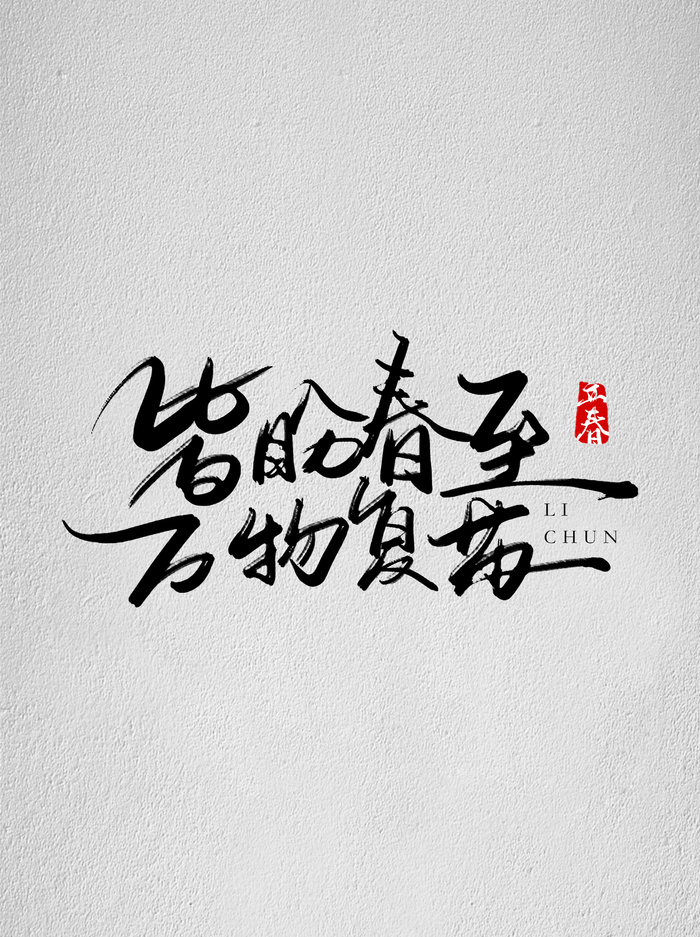 皆盼春至
立春
万物复苏
LI
CHUN